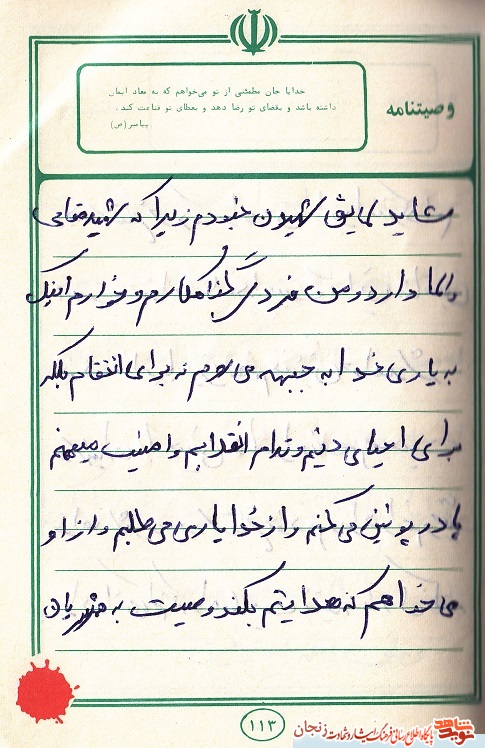 خدایا جان مطمئنی از تو می‌خواهم که به معاد ایمان
داشته باشد و بقضای تو رضا دهد و بعطای تو قناعت کند.
پیامبر (ص)
وصیتنامه
شاید لایق شهید شدن نبودم زیرا که شهید مقامی
والا دارد و من فردی گناهکارم و خوارم اینک
به یاری خدا به جبهه می روم نه برای انتقام بلکه
برای احیای دینم و تداوم انقلابم و امنیت میهنم
پا در پوتین می کنم و از خدا یاری می طلبم و از او
می خواهم که هدایتم بکند وصیت به
۱۱۳
نوید شاهد
پایگاه اطلاع رسانی فرهنگ ایثار و شهادت زنجان